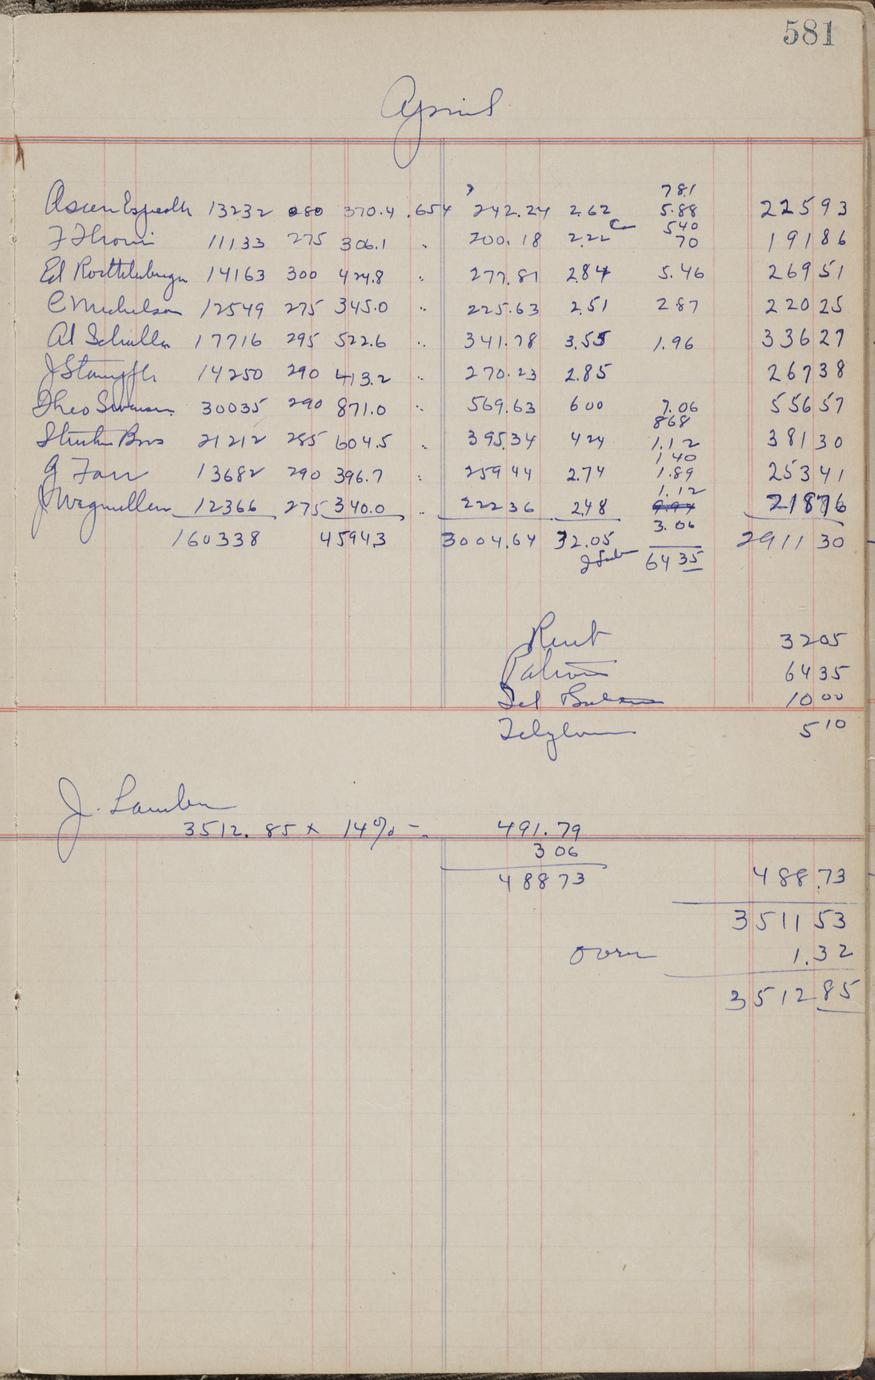 581
April
781
13232 280 370.4 .654 242.24 2.62 5.88 22593
Co 540
11133 275 306.1 " 200.18 2.22 70 19186
Ed 14163 300 424.8 " 277.81 2.84 5.46 26951
C Michelson 12549 275 345.0 " 225.63 2.51 2 87 22025
Al Schuller 17716 295 522.6 " 341.78 3.55 1.96 33627
J Stampfli 14250 290 413.2 " 270.23 2.85 26738
Theo Swanson 30035 290 871.0 " 569.63 6 00 7.06 55657
868
Bros 21212 285 604.5 " 395.34 4 24 1.12 38130
1 40
G Farr 13682 290 396.7 " 259 44 2.74 1.89 25341
1.12
J Wegmuller 12366 275 340.0 " 222 36 2.48 21876
3.06
160338 45943 3004.64 32.05 2911 30
64 35
Rent 3205
64 35
10 00
5 10
J.
3512.85 x 14% - 491.79
3 06
488 73 488.73
3511 53
Over 1.32
3512 85